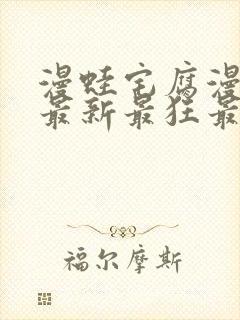 漫蛙宅腐漫
最新最狂最
福尔摩斯